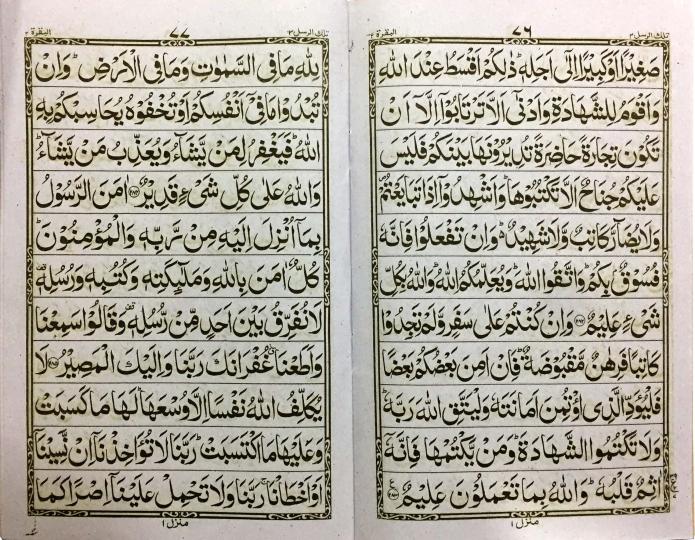 تلك الرسل ٣
٧٦
البقرة ٢
صَغِيْرًا اَوْ كَبِيْرًا اِلٰٓى اَجَلِهٖ ؕ ذٰلِكُمْ اَقْسَطُ عِنْدَ اللّٰهِ
وَاَقْوَمُ لِلشَّهَادَةِ وَاَدْنٰٓى اَلَّا تَرْتَابُوْٓا اِلَّآ اَنْ
تَكُوْنَ تِجَارَةً حَاضِرَةً تُدِيْرُوْنَهَا بَيْنَكُمْ فَلَيْسَ
عَلَيْكُمْ جُنَاحٌ اَلَّا تَكْتُبُوْهَا ؕ وَاَشْهِدُوْٓا اِذَا تَبَايَعْتُمْ ۪
وَلَا يُضَآرَّ كَاتِبٌ وَّلَا شَهِيْدٌ ؕ وَاِنْ تَفْعَلُوْا فَاِنَّهٗ
فُسُوْقٌۢ بِكُمْ ؕ وَاتَّقُوا اللّٰهَ ؕ وَيُعَلِّمُكُمُ اللّٰهُ ؕ وَاللّٰهُ بِكُلِّ
شَيْءٍ عَلِيْمٌ ﴿٢٨٢﴾ وَاِنْ كُنْتُمْ عَلٰى سَفَرٍ وَّلَمْ تَجِدُوْا
كَاتِبًا فَرِهٰنٌ مَّقْبُوْضَةٌ ؕ فَاِنْ اَمِنَ بَعْضُكُمْ بَعْضًا
فَلْيُؤَدِّ الَّذِى اؤْتُمِنَ اَمَانَتَهٗ وَلْيَتَّقِ اللّٰهَ رَبَّهٗ ؕ
وَلَا تَكْتُمُوا الشَّهَادَةَ ؕ وَمَنْ يَّكْتُمْهَا فَاِنَّهٗٓ
اٰثِمٌ قَلْبُهٗ ؕ وَاللّٰهُ بِمَا تَعْمَلُوْنَ عَلِيْمٌ ﴿٢٨٣﴾
منزل ١
تلك الرسل ٣
٧٧
البقرة ٢
لِلّٰهِ مَا فِى السَّمٰوٰتِ وَمَا فِى الْاَرْضِ ؕ وَاِنْ
تُبْدُوْا مَا فِىْٓ اَنْفُسِكُمْ اَوْ تُخْفُوْهُ يُحَاسِبْكُمْ بِهِ
اللّٰهُ ؕ فَيَغْفِرُ لِمَنْ يَّشَآءُ وَيُعَذِّبُ مَنْ يَّشَآءُ ؕ
وَاللّٰهُ عَلٰى كُلِّ شَيْءٍ قَدِيْرٌ ﴿٢٨٤﴾ اٰمَنَ الرَّسُوْلُ
بِمَآ اُنْزِلَ اِلَيْهِ مِنْ رَّبِّهٖ وَالْمُؤْمِنُوْنَ ؕ
كُلٌّ اٰمَنَ بِاللّٰهِ وَمَلٰٓئِكَتِهٖ وَكُتُبِهٖ وَرُسُلِهٖ ۟
لَا نُفَرِّقُ بَيْنَ اَحَدٍ مِّنْ رُّسُلِهٖ ۟ وَقَالُوْا سَمِعْنَا
وَاَطَعْنَا ۫ غُفْرَانَكَ رَبَّنَا وَاِلَيْكَ الْمَصِيْرُ ﴿٢٨٥﴾ لَا
يُكَلِّفُ اللّٰهُ نَفْسًا اِلَّا وُسْعَهَا ؕ لَهَا مَا كَسَبَتْ
وَعَلَيْهَا مَا اكْتَسَبَتْ ؕ رَبَّنَا لَا تُؤَاخِذْنَآ اِنْ نَّسِيْنَآ
اَوْ اَخْطَاْنَا ۚ رَبَّنَا وَلَا تَحْمِلْ عَلَيْنَآ اِصْرًا كَمَا
منزل ١